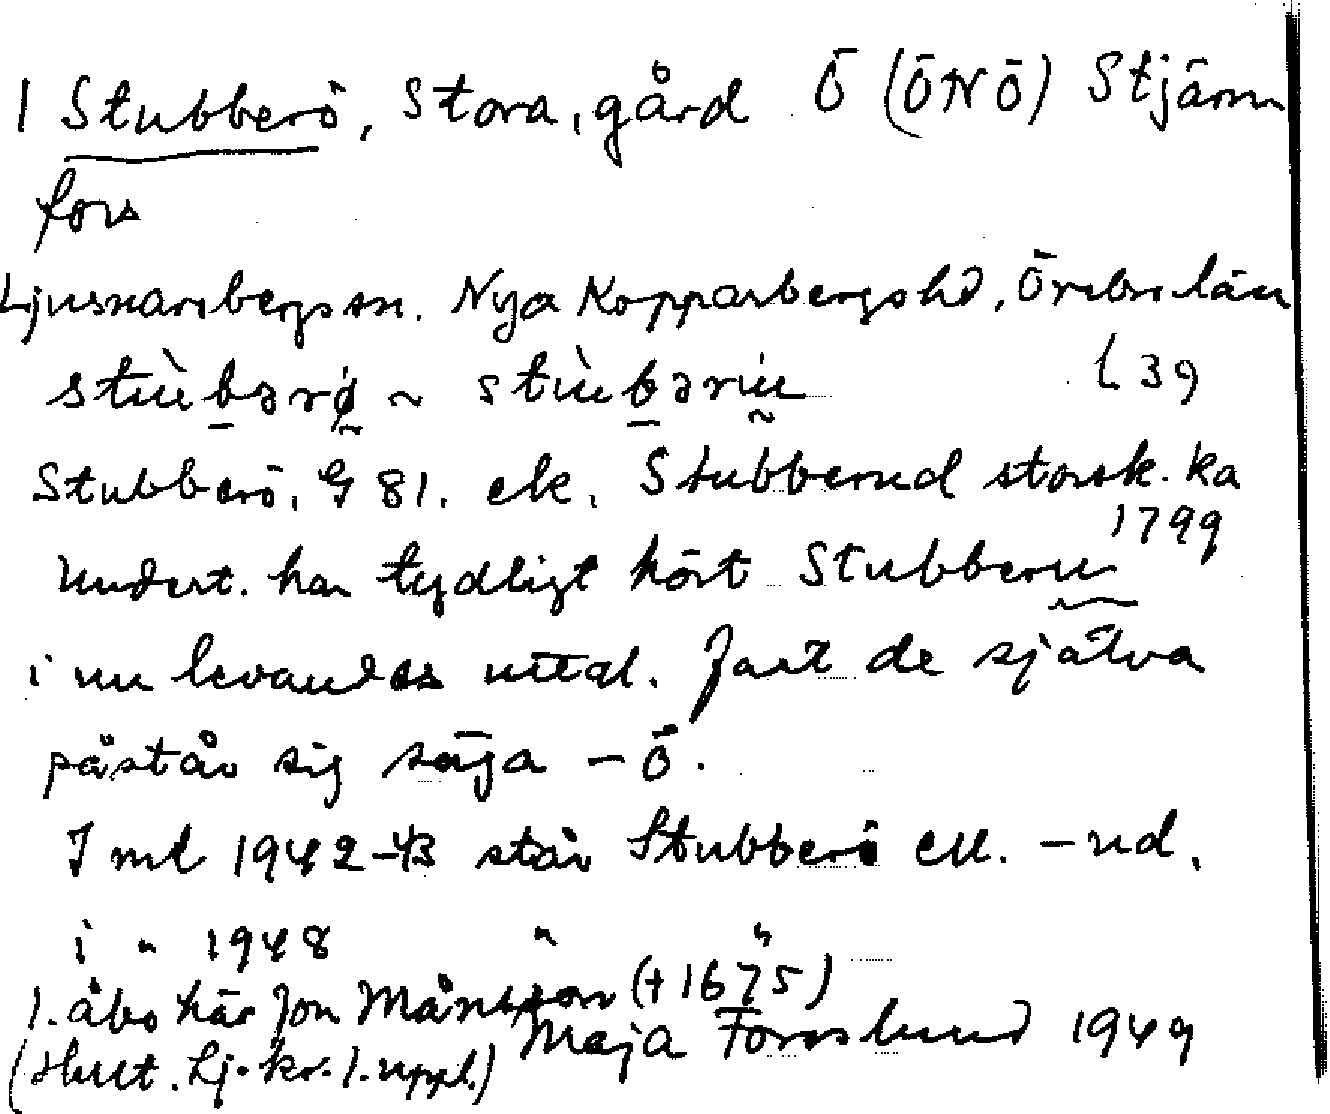 1 Stubberö, Stora, gård Ö (ÖNÖ) Stjärn
fors
Ljusnarsbergs sn. Nya Kopparbergs hd, Örebro län
stùbərø ~ stùbəru l 39
Stubberö, G 81. ek. Stubberud storsk. ka
1799
Undert. har tydligt hört Stubberu
i nu levandes uttal. Fast de själva
påstår sig säga – ö.
I ml 1942-43 står Stubberö ell. – ud,
i " 1948 " "
1. åbo här Jon Månsson (+ 1675)
Maja Forsslund 1949
(Hult. Lj. kr. 1. uppl.)